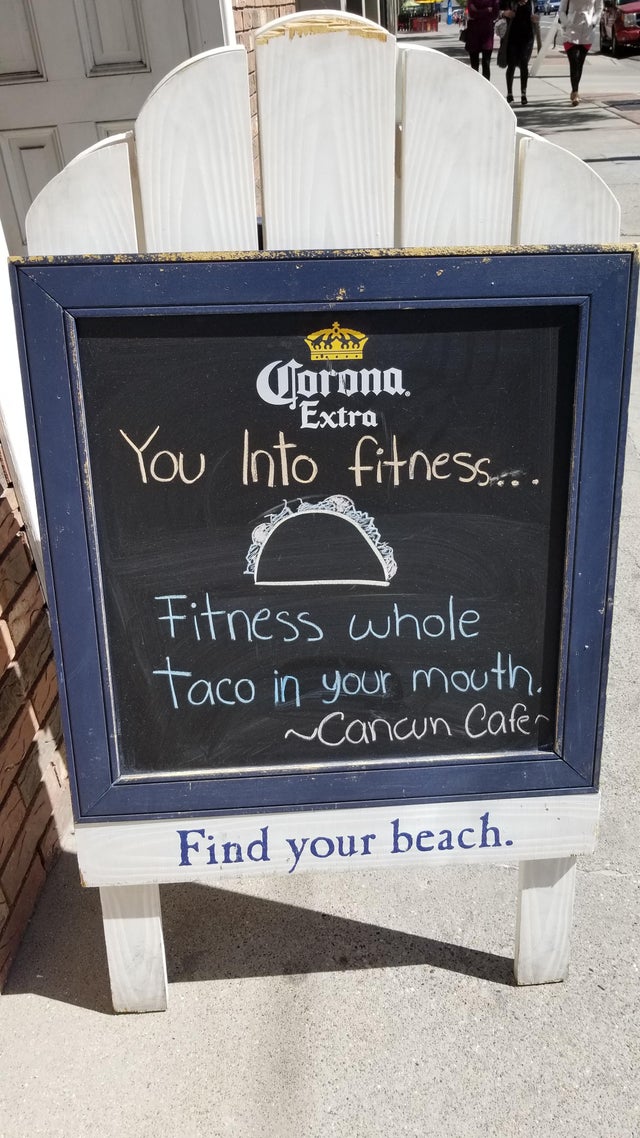 Corona
Extra
You Into fitness...
Fitness whole
taco in your mouth.
~Cancun Cafe~
Find your beach.